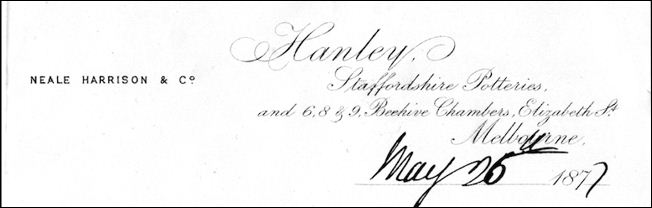 Hanley,
NEALE HARRISON & Co.
Staffordshire Potteries,
and 6, 8 & 9, Beehive Chambers, Elizabeth St.
Melbourne,
May 26 1877